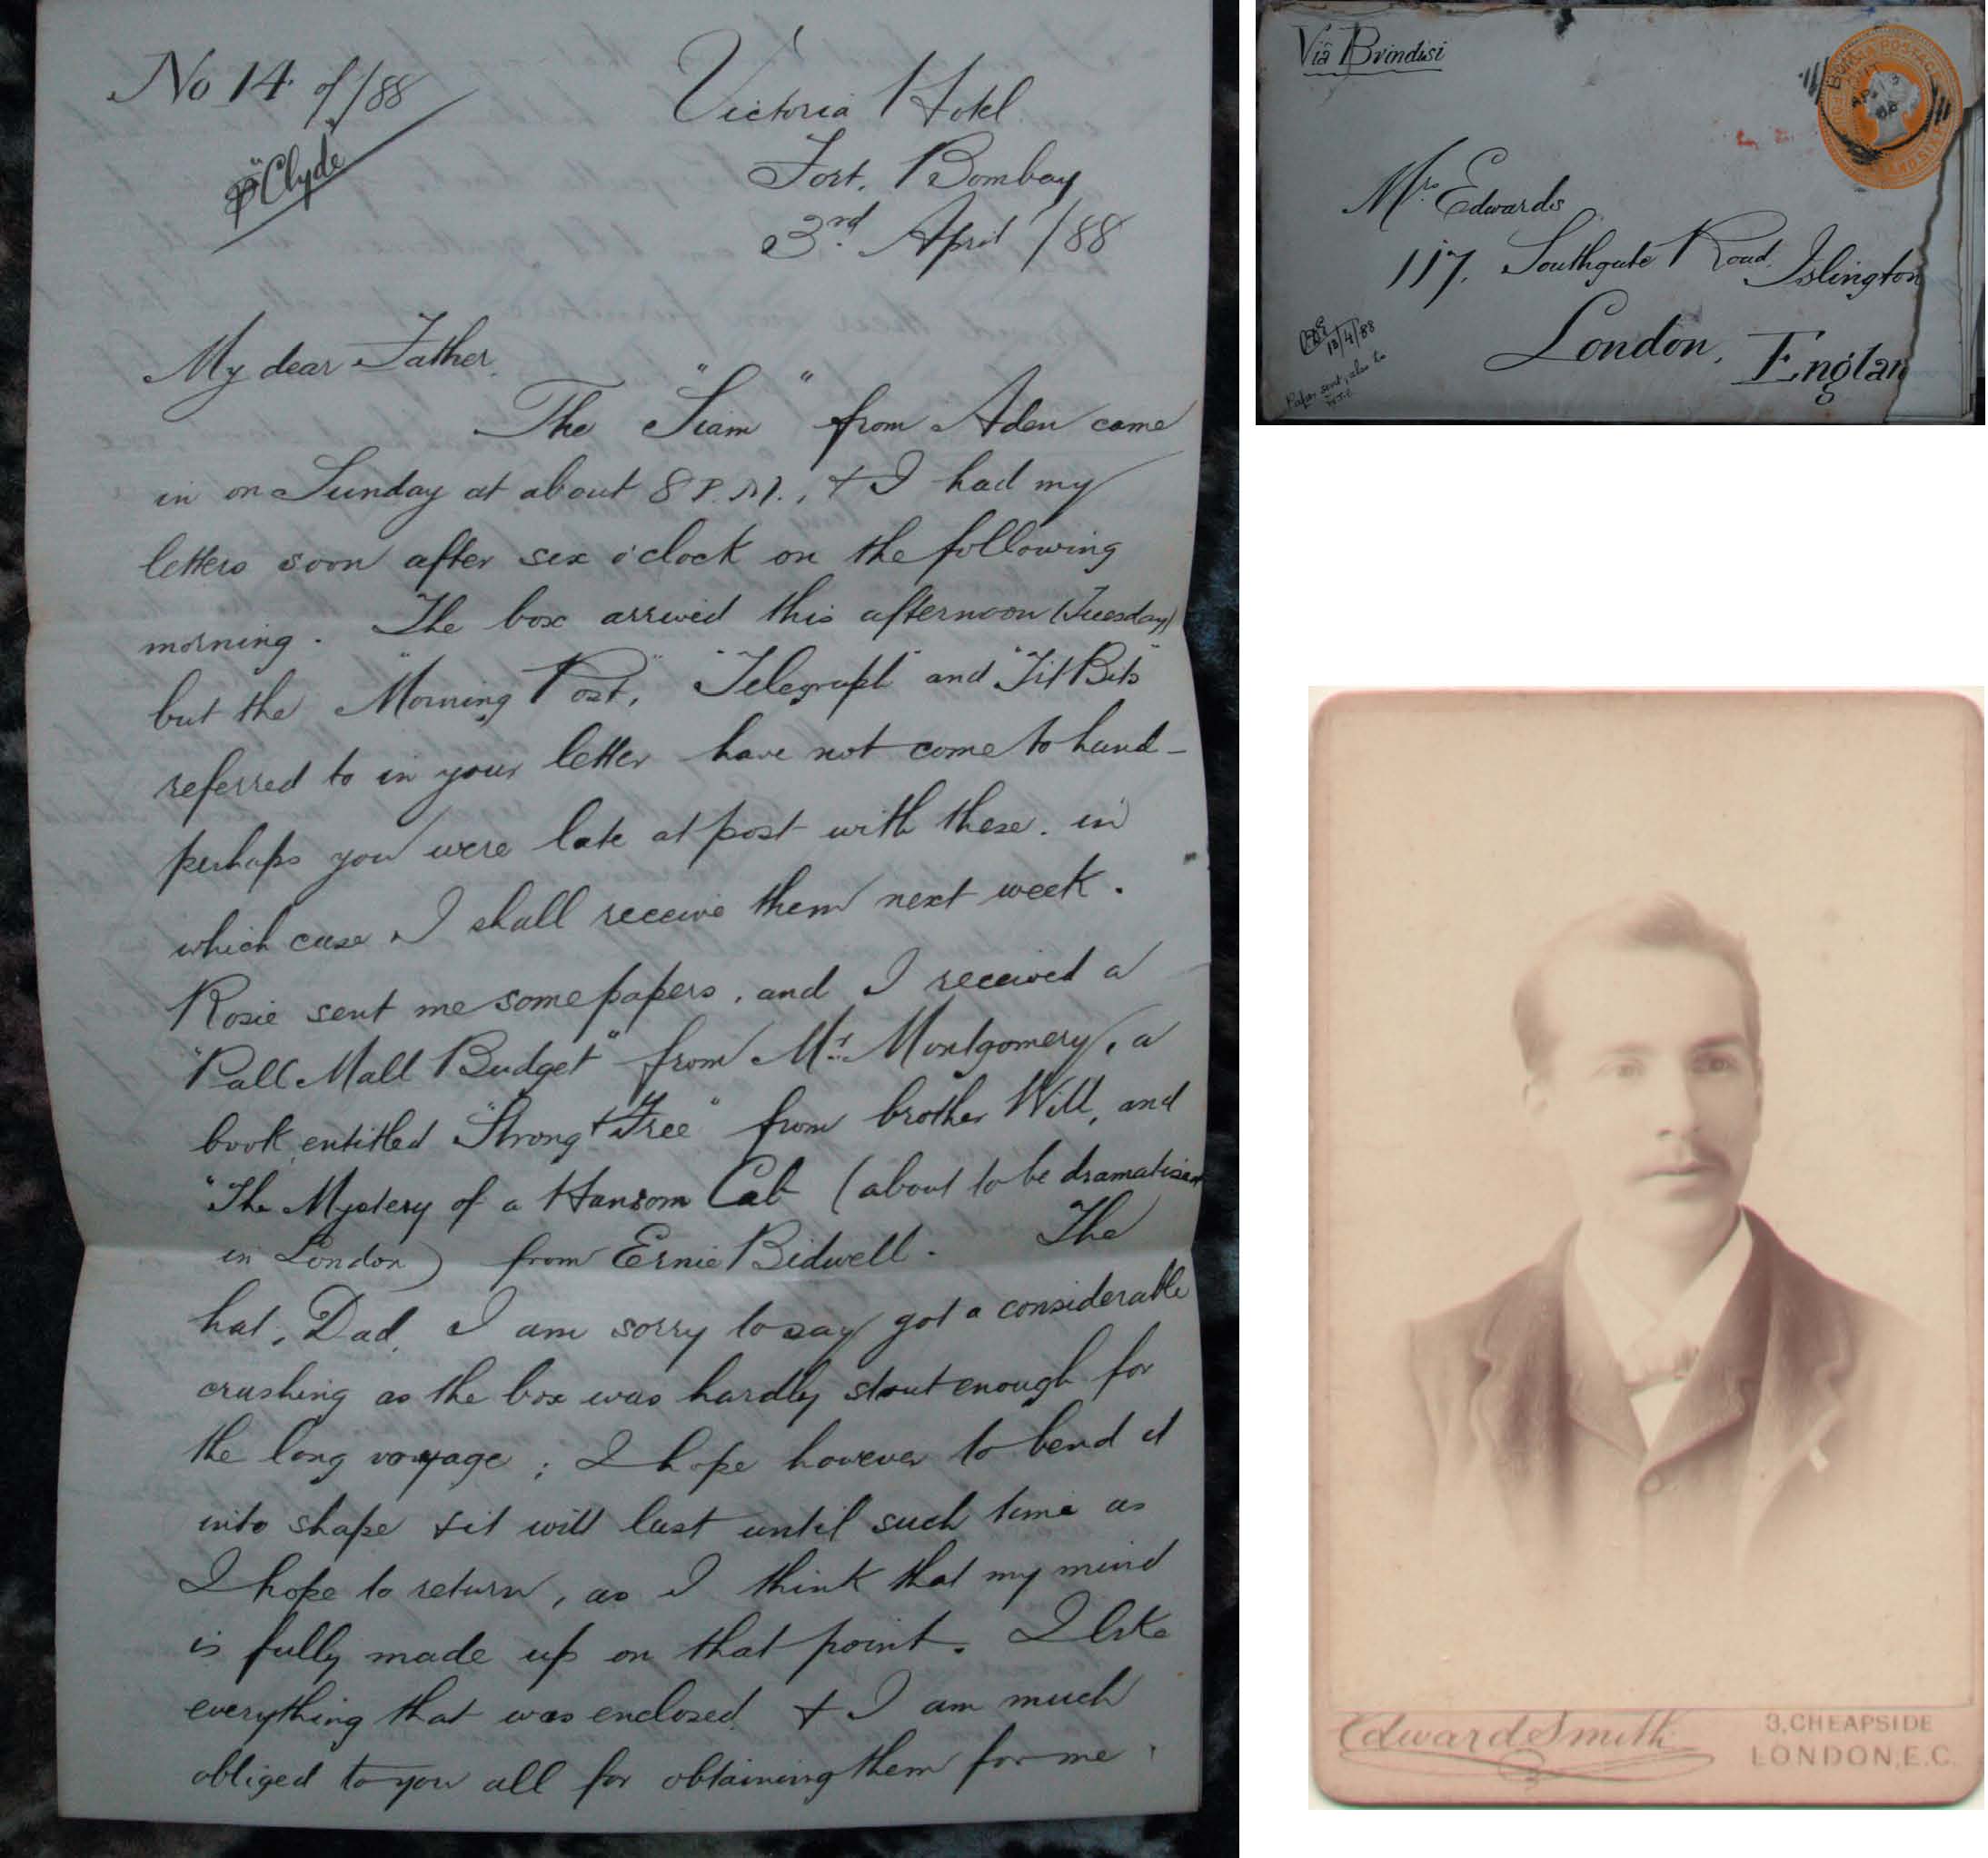 No 14 of /88
p "Clyde"
Victoria Hotel
Fort, Bombay
3rd April /88
My dear Father,
The "Siam" from Aden came
in on Sunday at about 8 P.M., & I had my
letters soon after six o'clock on the following
morning. The box arrived this afternoon (Tuesday)
but the "Morning Post", "Telegraph" and "Tit Bits"
referred to in your letter have not come to hand -
perhaps you were late at post with these. in
which case I shall receive them next week.
Rosie sent me some papers, and I received a
"Pall Mall Budget" from Mrs. Montgomery, a
book entitled "Strong & Free" from brother Will, and
"The Mystery of a Hansom Cab (about to be dramatised
in London) from Ernie Bidwell. The
hat, Dad, I am sorry to say got a considerable
crushing as the box was hardly stout enough for
the long voyage; I hope however to bend it
into shape & it will last until such time as
I hope to return, as I think that my mind
is fully made up on that point. I like
everything that was enclosed & I am much
obliged to you all for obtaining them for me.
Viâ Brindisi
Mrs. Edwards
117, Southgate Road, Islington
London, Englan
13/4/88
Paper sent, also to
POSTAG
Edward Smith
3, CHEAPSIDE
LONDON, E.C.